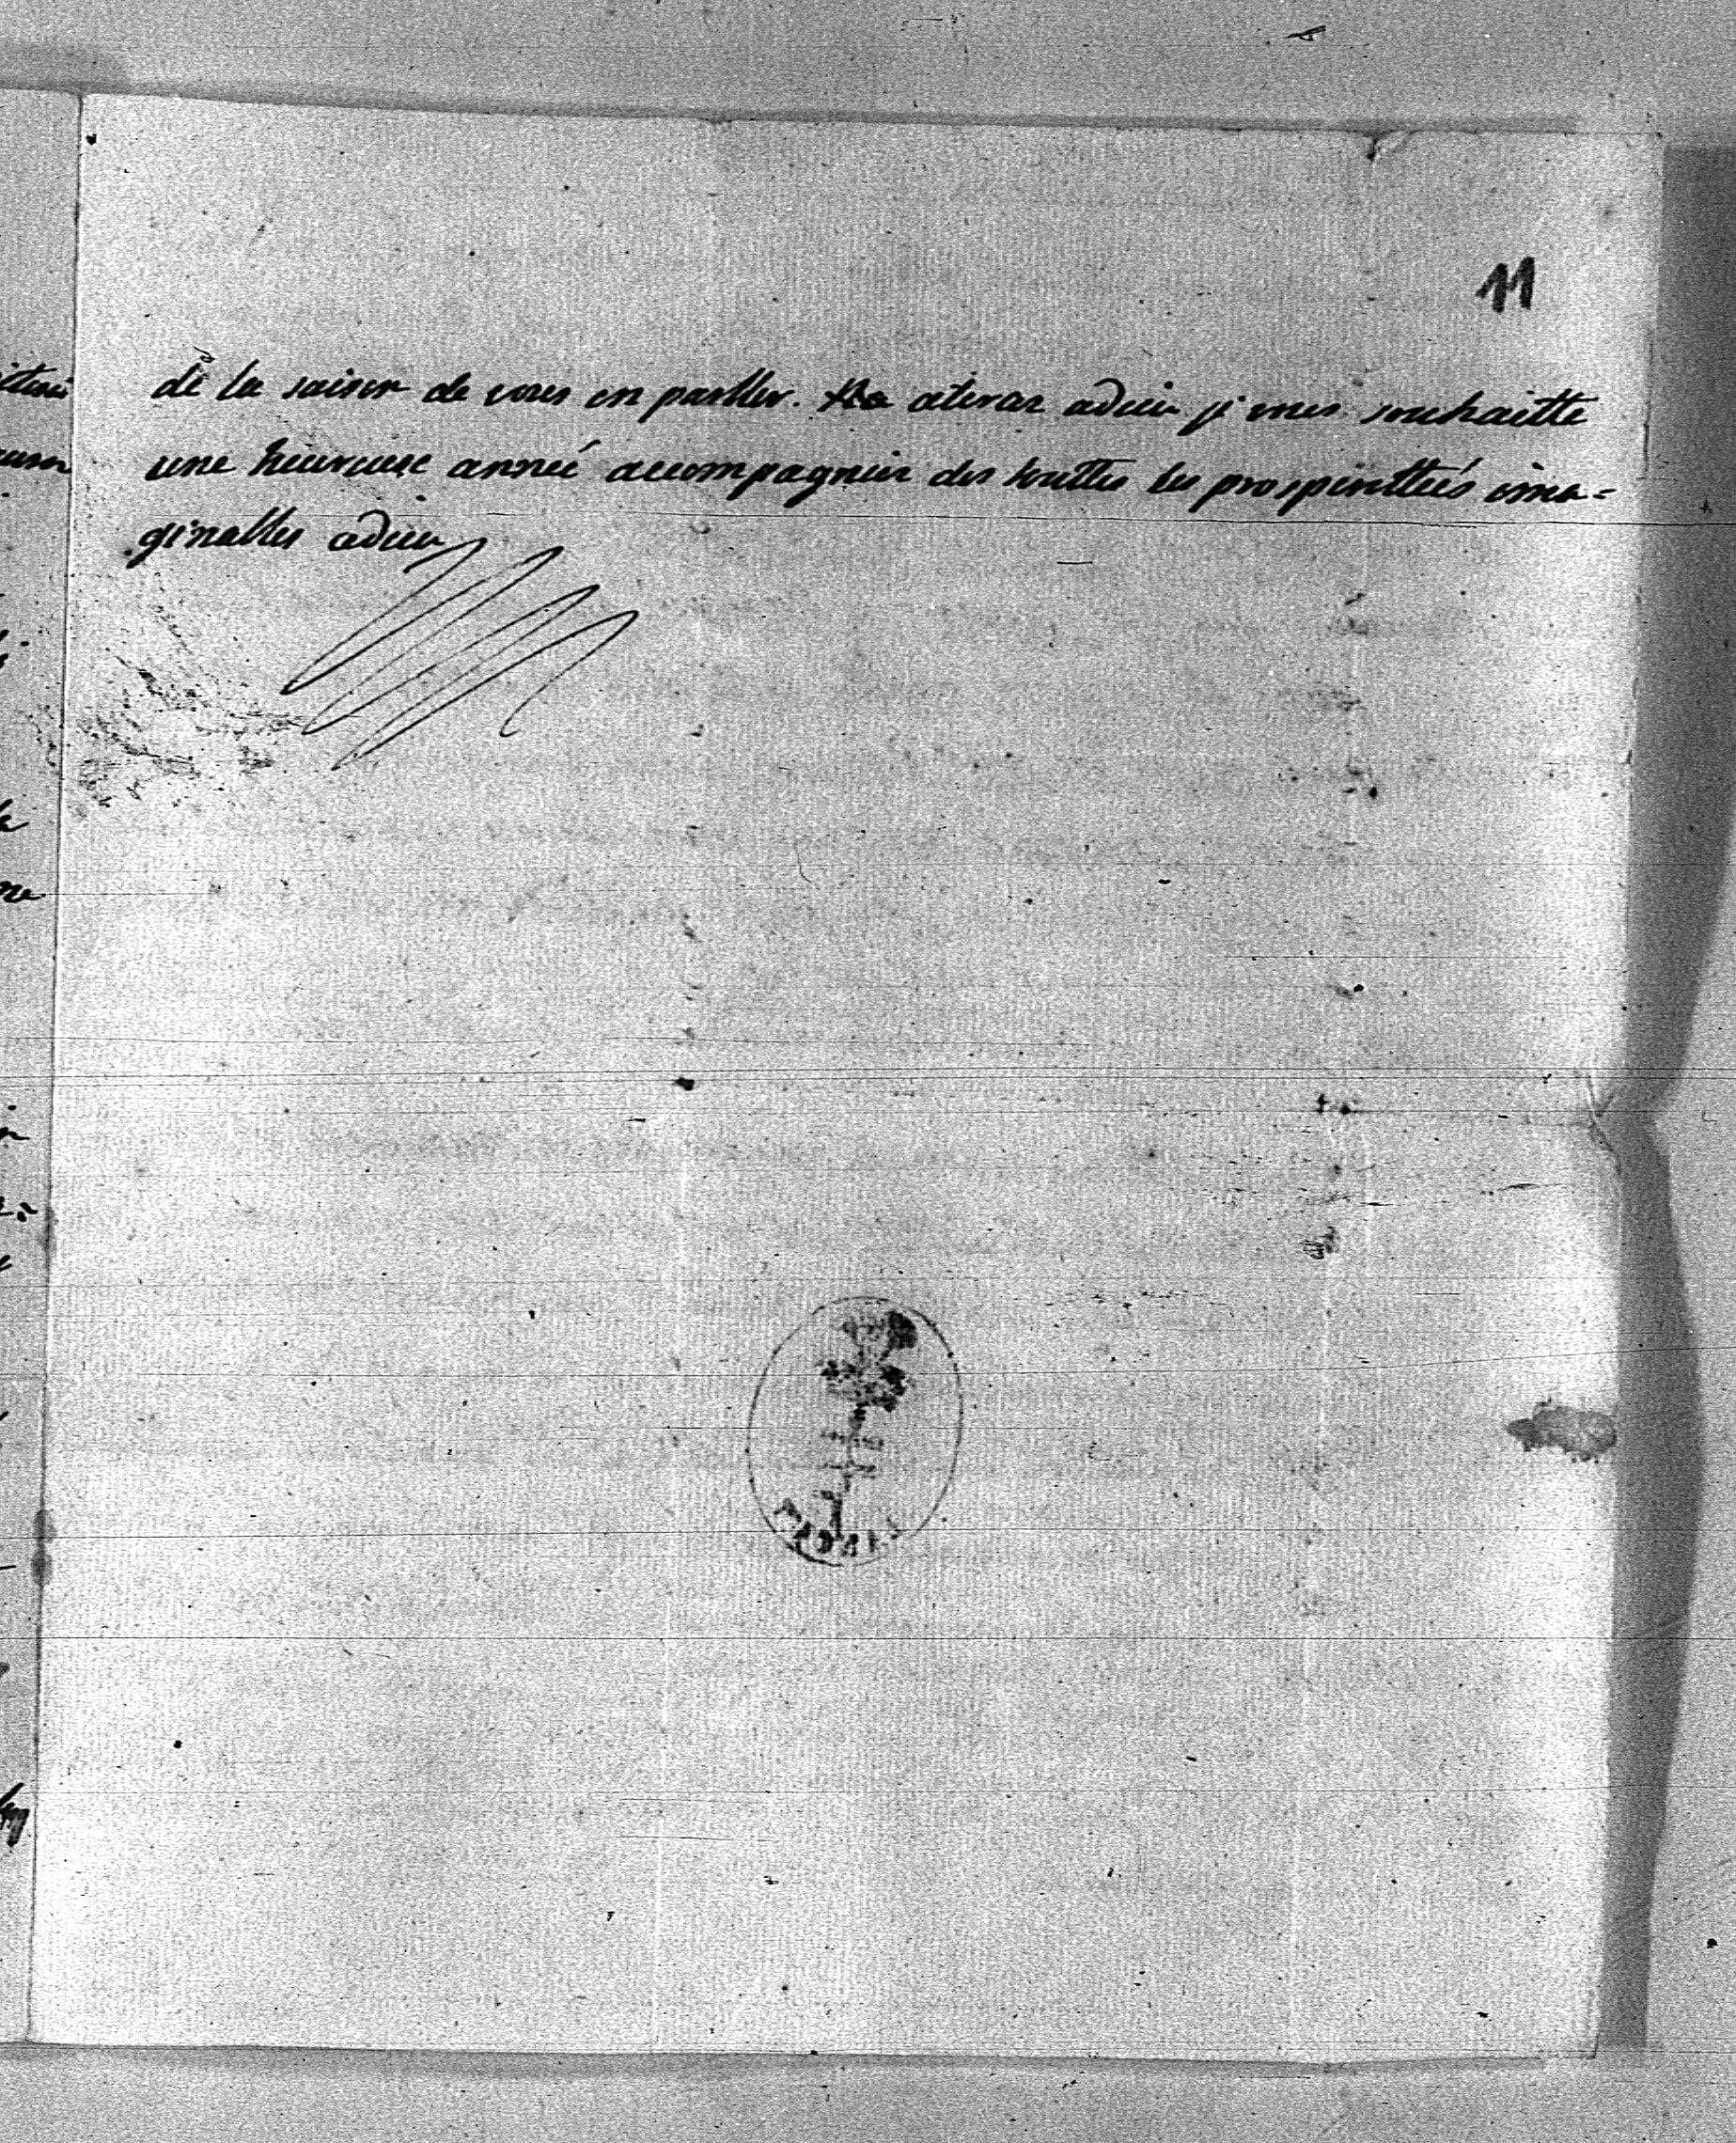 11
de la saison de vous en parller. adieu je vous souhaitte
une heureuse année accompagnée des touttes les prosperittés ima=
ginables adieu